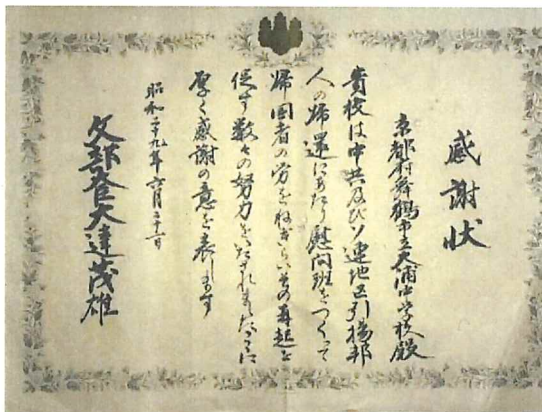 感謝状
京都府舞鶴市立大浦中学校殿
貴校は中共及びソ連地区引揚邦
人の帰還にあたり慰問班をつくって
帰国者の労をねぎらいその再起を
促す数々の努力をいたされましたことに
厚く感謝の意を表します
昭和二十九年六月二十一日
文部大臣大達茂雄